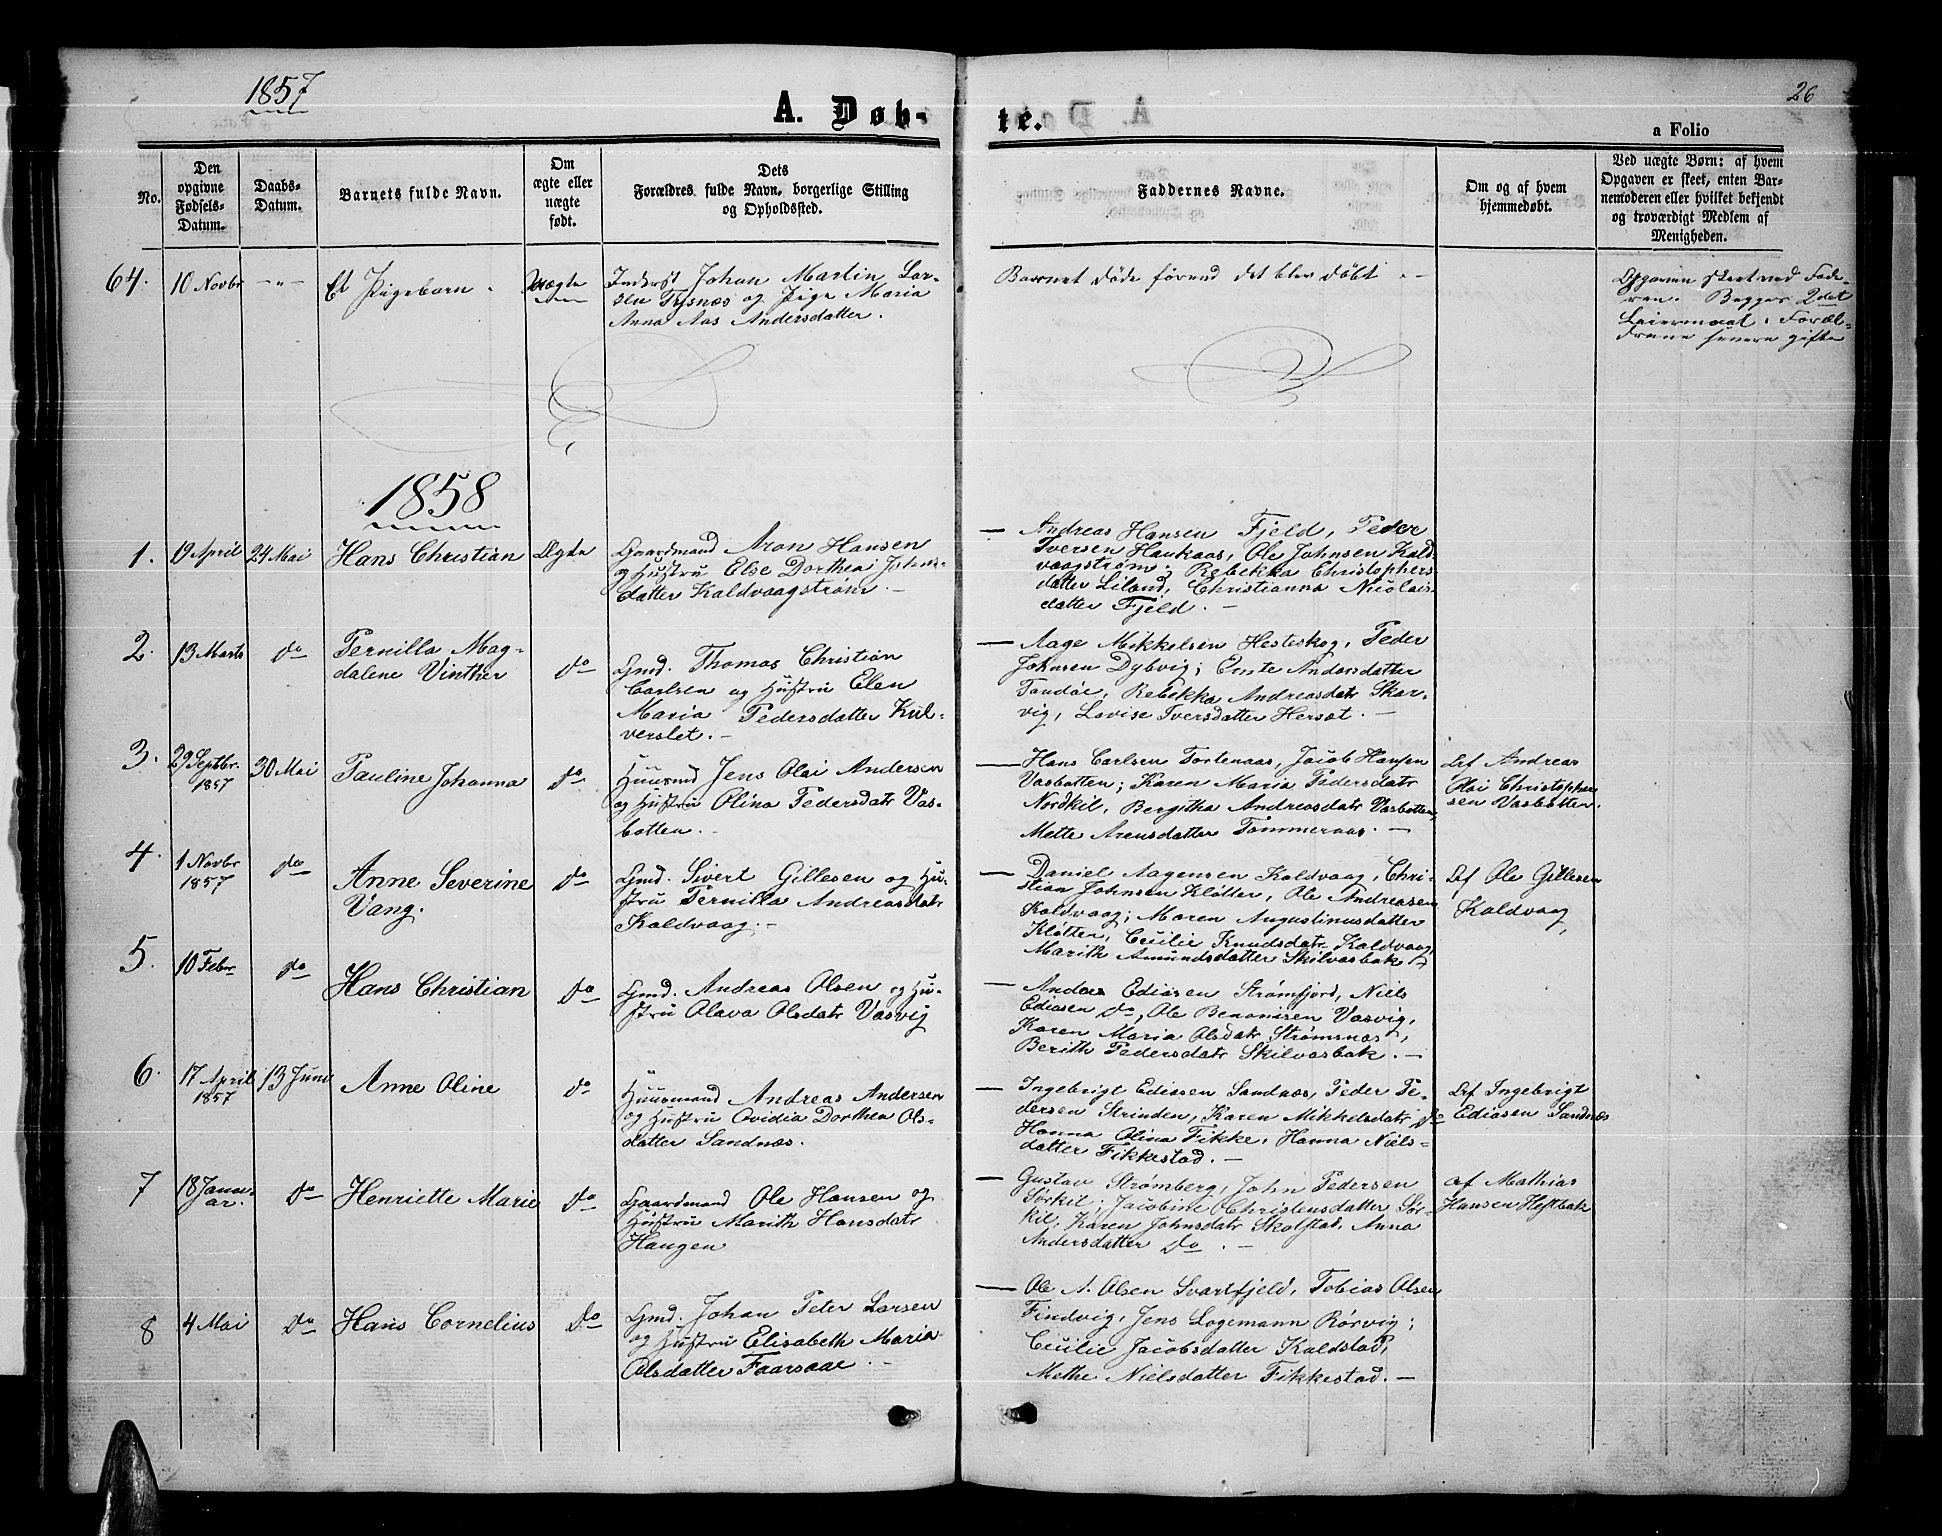 1857
26
A. Døb-
te.
a Folio
No.
Den
opgivne
Fødsels-
Datum.
Daabs-
Datum.
Barnets fulde Navn.
Om
ægte eller
uægte
født.
Dets
Forældres fulde Navn, borgerlige Stilling
og Opholdssted.
Faddernes Navne.
Om og af hvem
hjemmedøbt.
Ved uægte Børn: af hvem
Opgaven er skeet, enten Bar-
nemoderen eller hvilket bekjendt
og troværdigt Medlem af
Menigheden.
64.
10 Novbr
- " -
Et Pigebarn.
Uægte
Inderst Johan Martin Lar-
sen Tysnæs og Pige Maria
Anna Aas Andersdatter.
Barnet døde førend det blev døbt. -
Opgaven skeet ved Fade-
ren. Begges 2det
Leiermaal. Foræl-
drene senere gifte
1858
1.
19 April
24 Mai
Hans Christian
Ægte
Gaardmand Aron Hansen
og Hustru Else Dorthea Johns-
datter Kaldvaagstrøm. -
- Andreas Hansen Fjeld, Peder
Iversen Haukaas, Ole Johnsen Kald-
vaagstrøm; Rebekka Christophers-
datter Liland, Christianna Nicolais-
datter Fjeld. -
2.
13 Marts
do
Pernilla Mag-
dalene Vinther
do
Gmd. Thomas Christian
Carlsen og Hustru Elen
Maria Pedersdatter Kul-
verslet. -
- Aage Mikkelsen Hesteskog, Peder
Johnsen Dybvig; Emte Andersdatter
Tandøe, Rebekka Andreasdatr Skar-
vig, Lovise Iversdatter Hersæt. -
3.
29 Septbr.
1857
30 Mai
Pauline Johanna
do
Huusmd Jens Olai Andersen
og Hustru Olina Pedersdatr Vas-
botten. -
- Hans Carlsen Tortenaas, Jacob Hansen
Vasbotten; Karen Maria Pedersdatr
Nordkil, Bergitha Andreasdatr Vasbotten,
Mette Arensdatter Tømmeraas. -
Af Andreas
Olai Christopher-
sen Vasbotten.
4.
1 Novbr
1857
do
Anne Severine
Vang.
do
Gmd. Sivert Gillesen og Hu-
stru Pernilla Andreasdatr
Kaldvaag. -
- Daniel Aagensen Kaldvaag, Chri-
stian Johnsen Kløtter, Ole Andreasen
Kaldvaag; Maren Augustinusdatter
Kløtten, Cecilie Knudsdatr Kaldvaag,
Marith Amundsdatter Skilvasbak. -
Af Ole Gillesen
Kaldvaag,
5.
10 Febr
do
Hans Christian
do
Gmd. Andreas Olsen og Hu-
stru Olava Olsdatr Vasvig
- Andors Ediasen Strømfjord, Niels
Ediasen do, Ole Benonisen Vasvig,
Karen Maria Olsdatr Strømsnæs,
Berith Pedersdatr Skilvasbak. -
6.
17 April
1857
13 Juni
Anne Oline
do
Huusmand Andreas Andersen
og Hustru Ovidia Dorthea Ols-
datter Sandnæs.
- Ingebrigt Ediasen Sandnæs, Peder Pe-
dersen Strinden, Karen Mikkelsdatr do
Hanna Olina Fikke, Hanna Niels-
datter Fikkestad. -
Af Ingebrigt
Ediasen Sandnæs
7
18 Janu-
ar.
do
Henriette Marie
do
Gaardmand Ole Hansen og
Hustru Marith Hansdatr
Haugen
- Gustav Strømberg, John Pedersen
Sørkil; Jacobine Christensdatter Sør-
kil, Karen Johnsdatr Skolstad, Anna
Andersdatter do. -
af Mathias
Hansen Hestbak
8
4 Mai
do
Hans Cornelius
do
Gmd. Johan Peter Larsen
og Hustru Elisabeth Maria
Olsdatter Faarsaae. -
- Ole N. Olsen Svartfjeld, Tobias Olsen
Findvig, Jens Lagemann Rørvig;
Cecilie Jacobsdatter Kaldstad,
Methe Nielsdatter Fikkestad. -